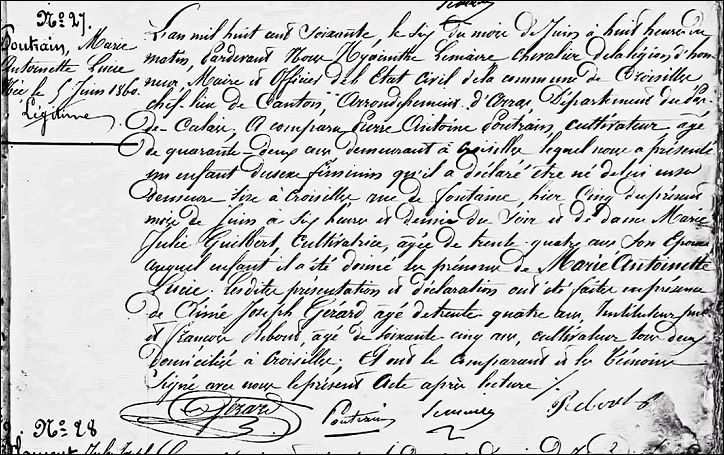 N.° 27.
Poutrain, Marie
Antoinette Lucie
Née le 5 Juin 1860.
Légitime
L'an mil huit cent soixante, le six du mois de Juin à huit heures du
matin, Pardevant Nous Hyacinthe Lemaire, chevalier de la légion d'hon
neur, Maire et Officier de l'Etat Civil de la commune de Croisilles
chef-lieu de Canton, Arrondissement d'Arras, Département du Pas-
de-Calais, A comparu Pierre Antoine Poutrain, cultivateur, âgé
de quarante-deux ans demeurant à Croisilles lequel nous a présenté
un enfant du sexe féminin qu'il a déclaré être né de lui en sa
demeure sise à Croisilles rue de fontaine, hier Cinq du présent
mois de Juin à Six heures et demie du Soir et de dame Marie
Julie Guilbert, Cultivatrice, agée de trente-quatre ans Son Epouse
auquel enfant il a été donné les prénoms de Marie Antoinette
Lucie. Lesdites présentation et déclaration ont été faites en présence
de Aimé Joseph Gérard âgé de trente quatre ans, Instituteur
et François Reboul, âgé de soixante-cinq ans, cultivateur tous deux
domiciliés à Croisilles. Et ont le comparant et les témoins
Signé avec nous le présent Acte après lecture /.
Gérard Poutrain Lemaire Reboul
N.° 28